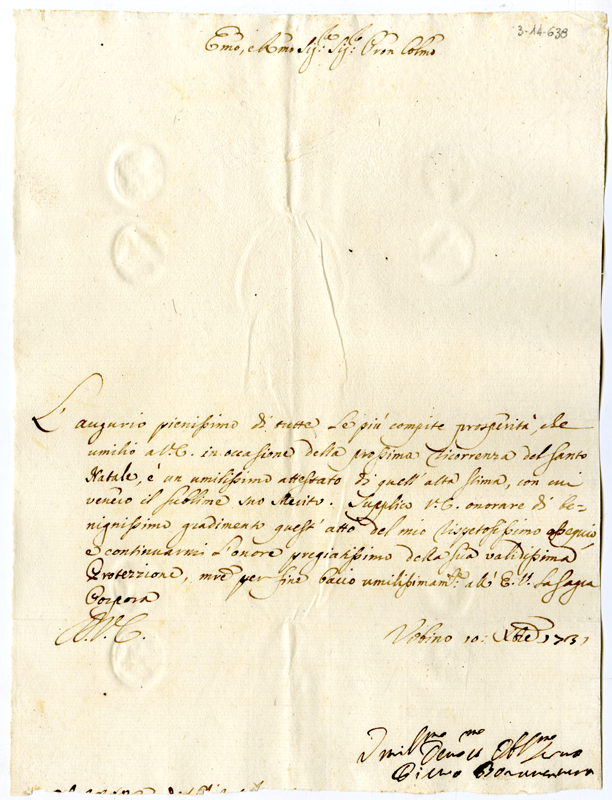 3-14-638
Emo, e Rmo Sig.re Sig.re Pron Colmo
L'augurio pienissimo di tutte le più compite prosperità che
umilio a V.E. in occasione della prossima ricorrenza del Santo
Natale, è un umilissimo attestato di quell'alta stima, con cui
venero il sublime suo Merito. Supplico V.E. onorare di be-
nignissimo gradimento quest'atto del mio rispettosissimo ossequio
e continuarmi l'onore pregiatissimo della sua validissima
Protezzione, mre per fine bacio umilissimam.te all'E.V. la Sagra
Porpora
D.V.E.
Urbino 10: Xbre 1731
Umill.mo Devo.mo Obl.mo Servo
Pietro Bonaventura